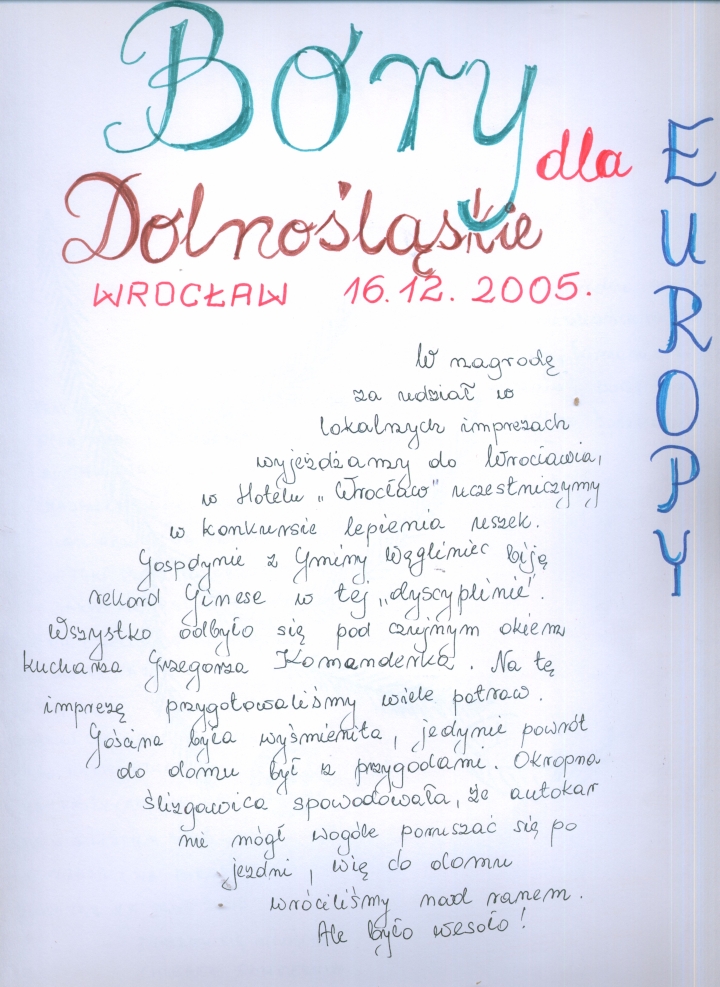 Bory
Dolnośląskie
dla
EUROPY
WROCŁAW 16.12.2005.
W nagrodę
za udział w
lokalnych imprezach
wyjeżdżamy do Wrocławia,
w Hotelu „Wrocław" uczestniczymy
w konkursie lepienia uszek.
Gospdynie z Gminy Węgliniec biją
rekord Ginese w tej „dyscyplinie".
Wszystko odbyło się pod czujnym okiem
kucharza Grzegorza Komanderka. Na tę
imprezę przygotowaliśmy wiele potraw.
Gościna była wyśmienita, jedynie powrót
do domu był z przygodami. Okropna
ślizgawica spowodowała, że autokar
nie mógł wogóle poruszać się po
jezdni, wię do domu
wróciliśmy nad ranem.
Ale było wesoło!